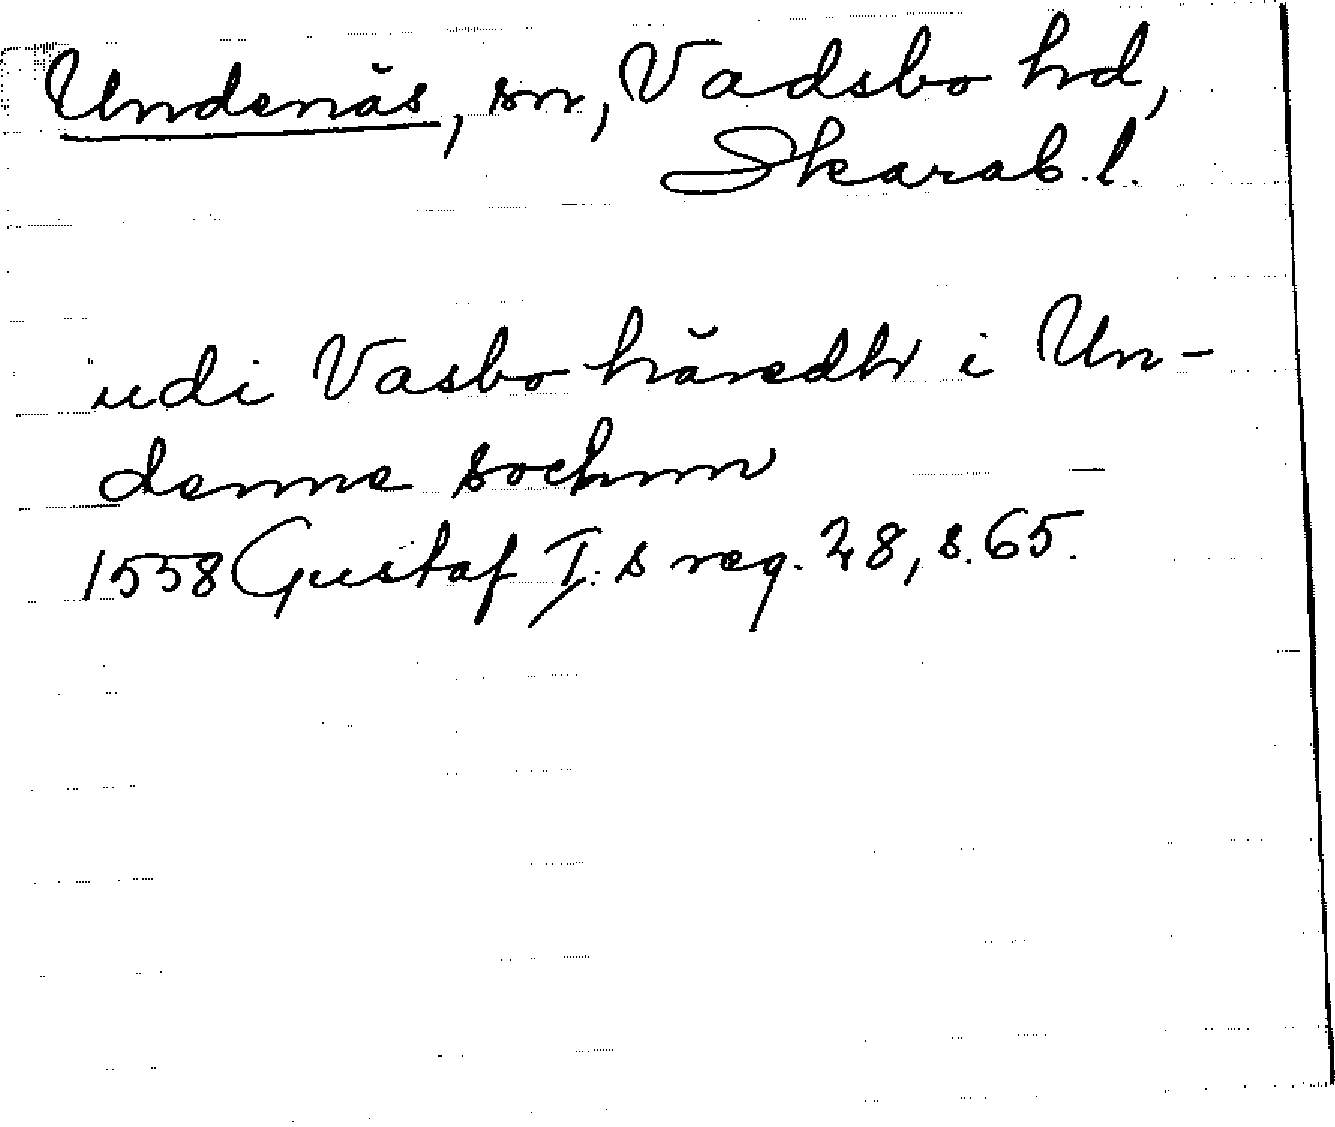 Undenäs, sn, Vadsbo hd,
Skarab. l.
udi Vasbo häredhr i Un-
denne sochnn
1558 Gustaf I:s reg. 28, s. 65.